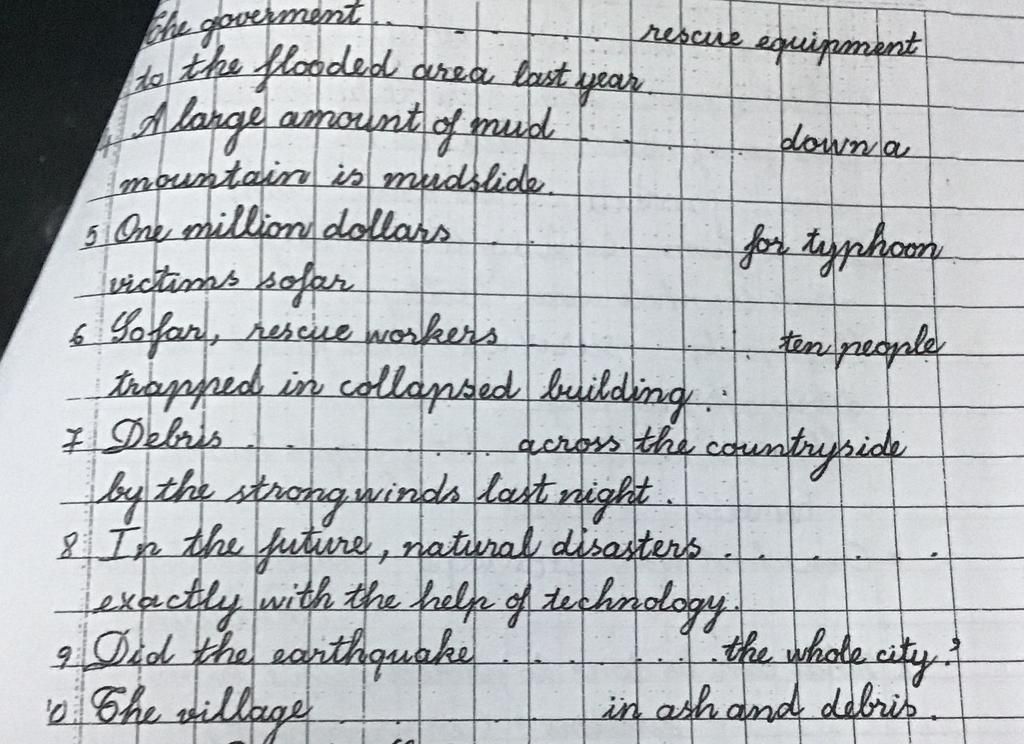 The goverment . . . . . . . rescue equipment
to the flooded area last year.
A large amount of mud . . . . down a
mountain is mudslide.
5 One million dollars . . . for typhoon
victims sofar
6 Sofar, rescue workers . . ten people
trapped in collapsed building . .
7 Debris . . . . . . across the countryside
by the strong winds last night .
8 In the future, natural disasters . . . . . .
exactly with the help of technology.
9 Did the earthquake . . . . . . . the whole city ?
10. The village . . . . in ash and debris .